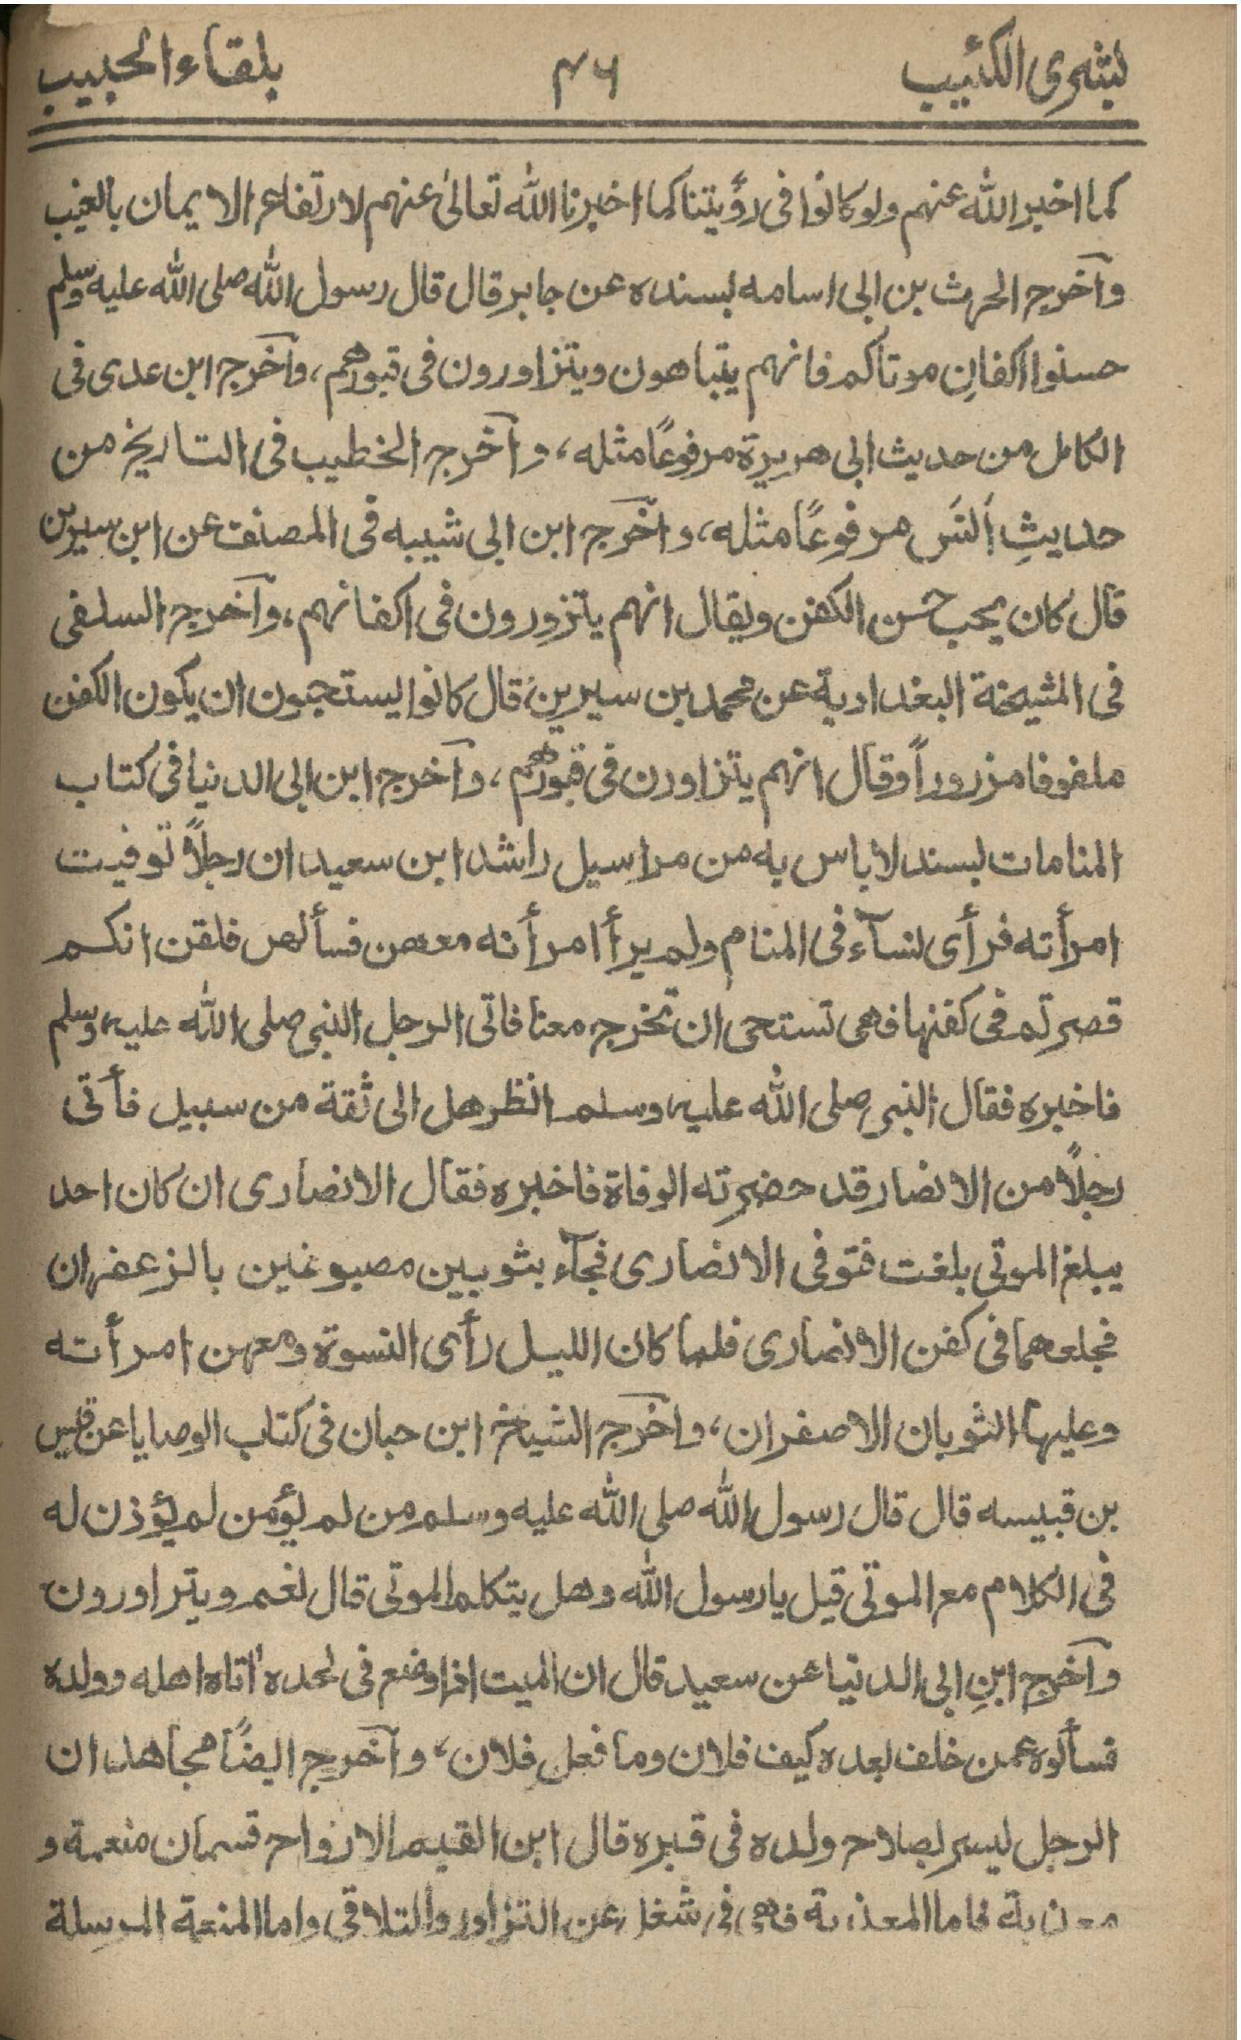 بشرى الكئيب
٤٦
بلقاء الحبيب
كما اخبر الله عنهم ولو كانوا فى رؤيتنا كما اخبرنا الله تعالىٰ عنهم لارتفاع الايمان بالغيب
وآخرج الحرث بن ابى اسامه بسنده عن جابر قال قال رسول الله صلى الله عليه وسلم
حسنوا اكفانِ موتاكم فانهم يتباهون ويتزاورون فى قبورهم، وآخرج ابن عدى فى
الكامل من حديث ابى هريرة مرفوعًا مثله، وآخرج الخطيب فى التاريخ من
حديثِ اَنَس مرفوعًا مثله، وآخرج ابن ابى شيبه فى المصنف عن ابن سيرين
قال كان يحب حسن الكفن ويقال انهم يتزورون فى اكفانهم، وآخرج السلفى
فى المشيخة البغدادية عن محمد بن سيرين قال كانوا يستحبون ان يكون الكفن
ملفوفا مزروراً وقال انهم يتزاورن فى قبورهم، وآخرج ابن ابى الدنيا فى كتاب
المنامات بسند لا باس به من مراسيل راشد ابن سعيد ان رجلًا توفيت
امرأته فرأى نسآء فى المنام ولم يرأ امرأته معهن فسألهن فلقن انكم
قصرتم فى كفنها فهى تستحى ان تخرج معنا فاتى الرجل النبى صلى الله عليه وسلم
فاخبره فقال النبى صلى الله عليه وسلم انظر هل الى ثقة من سبيل فأتى
رجلًا من الانصار قد حضرته الوفاة فاخبره فقال الانصارى ان كان احد
يبلغ الموتى بلغت فتوفى الانصارى فجآء بثوبين مصبوغين بالزعفران
فجلعهما فى كفن الانصارى فلما كان الليل رأى النسوة ومعهن امرأته
وعليها الثوبان الاصفران، وآخرج الشيخ ابن حبان فى كتاب الوصايا عن قيس
بن قبيسه قال قال رسول الله صلى الله عليه وسلم من لم يؤمن لم يؤذن له
فى الكلام مع الموتى قيل يا رسول الله وهل يتكلم الموتى قال نعم ويتراورون
وآخرج ابنِ ابى الدنيا عن سعيد قال ان الميت اذا وضع فى لحده اتاه اهله وولده
فسألوه عمن خلف بعده كيف فلان وما فعل فلان، وآخرج ايضًا مجاهد ان
الرجل ليسر بصلاح ولده فى قبره قال ابن القيم الارواح قسمان منعمة و
معذبة فاما المعذبة فهى فى شغل عن التزاور والتلاقى واما المنعة المرسلة